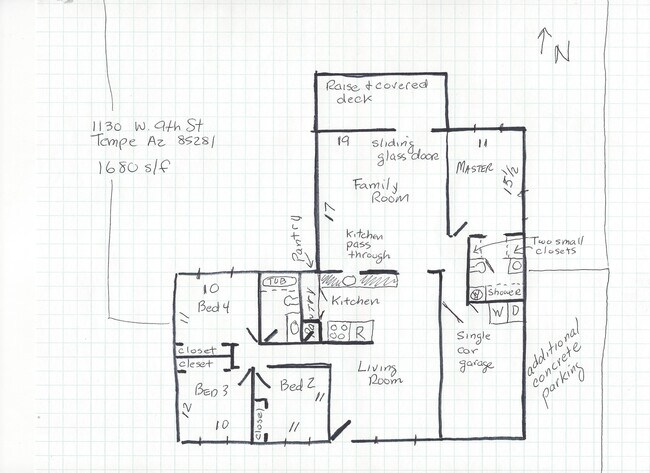 N
Raised covered
deck
1130 W. 9th St
Tempe Az 85281
1680 s/f
19
sliding
glass door
11
MASTER
15 1/2
Family
Room
17
Kitchen
pass
through
Pantry
Two small
closets
TUB
10
Bed 4
PANTRY
Kitchen
R
Shower
W D
closet
closet
Single
car
garage
additional
concrete
parking
Living
Room
BED 3
Bed 2
12
11
closet
10
11